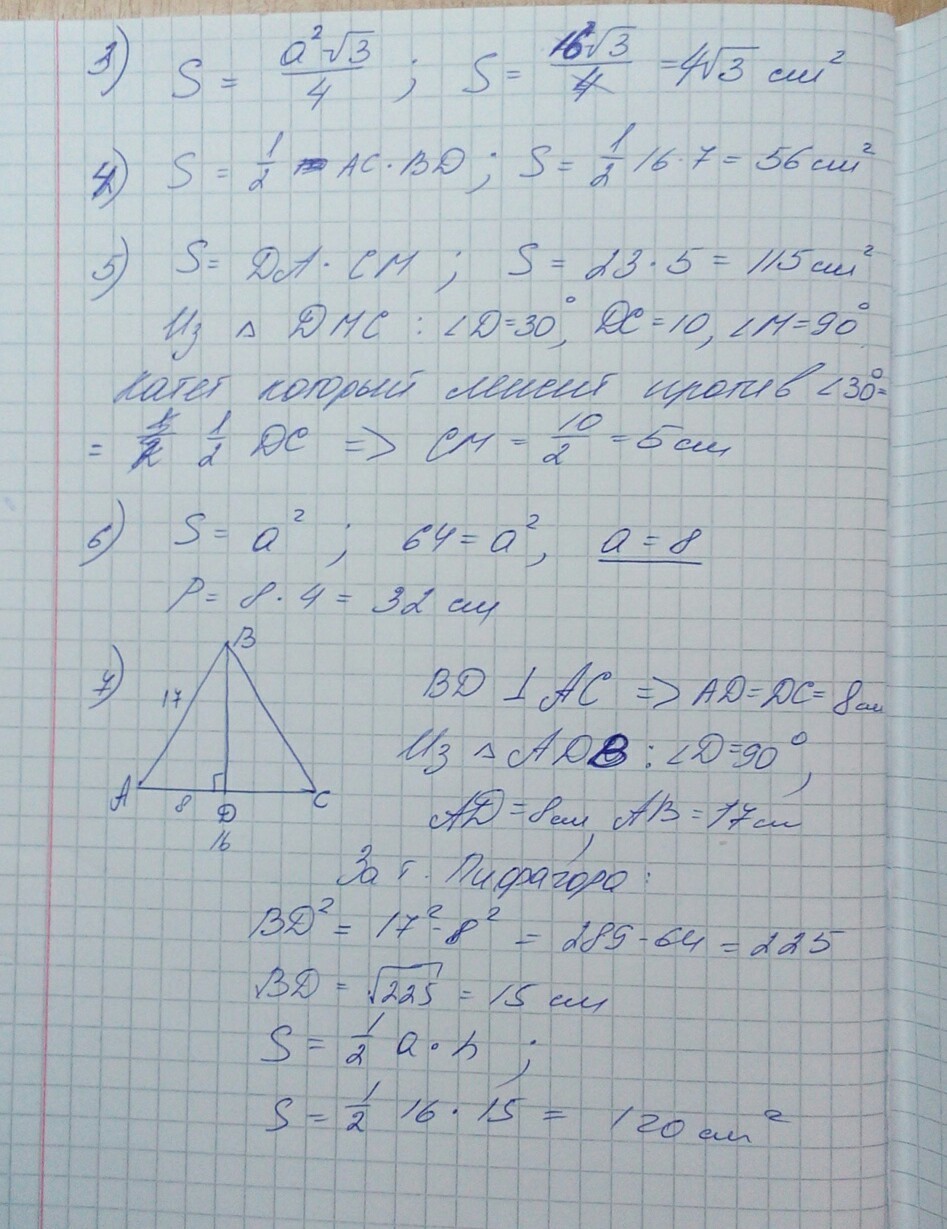 3) S = a²√3/4 ; S = 16√3/4 = 4√3 см²
4) S = 1/2 AC · BD ; S = 1/2 16 · 7 = 56 см²
5) S = DA · CM ; S = 23 · 5 = 115 см²
Из △ DMC : ∠D = 30°, DC = 10, ∠M = 90°
Катет который лежит против ∠30° =
= 1/2 DC => CM = 10/2 = 5 см
6) S = a² ; 64 = a², a = 8
P = 8 · 4 = 32 см
7) B
17
A 8 D C
16
BD ⊥ AC => AD = DC = 8 см
Из △ ADB : ∠D = 90°,
AD = 8 см, AB = 17 см
За т. Пифагора :
BD² = 17² - 8² = 289 - 64 = 225
BD = √225 = 15 см
S = 1/2 a · h ;
S = 1/2 16 · 15 = 120 см²